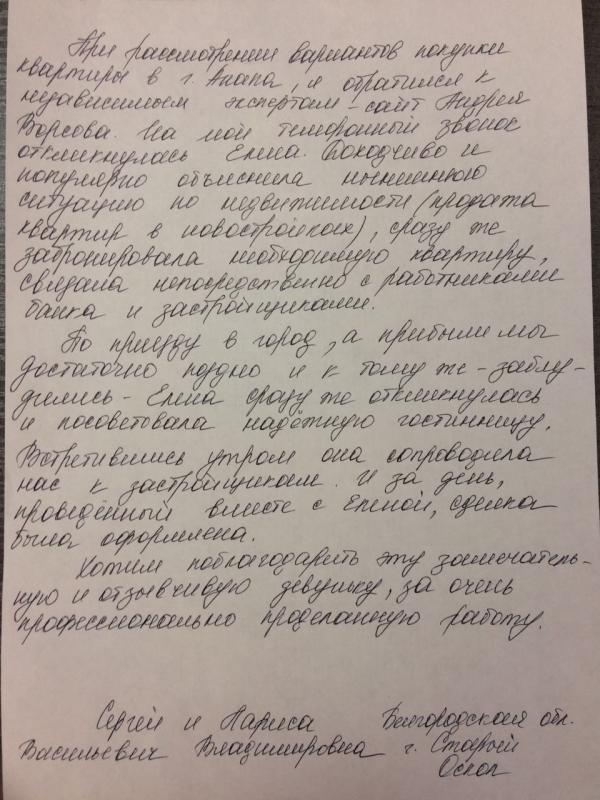 При рассмотрении вариантов покупки
квартиры в г. Анапа, я обратился к
независимым экспертам - сайт Андрея
Борсова. На мой телефонный звонок
откликнулась Елена. Доходчиво и
популярно объяснила нынешнюю
ситуацию по недвижимости (продажа
квартир в новостройках), сразу же
забронировала необходимую квартиру,
связала непосредственно с работниками
банка и застройщиками.
По приезду в город, а прибыли мы
достаточно поздно и к тому же - заблу-
дились - Елена сразу же откликнулась
и посоветовала надёжную гостинницу.
Встретившись утром она сопроводила
нас к застройщикам. И за день,
проведённый вместе с Еленой, сделка
была оформлена.
Хотим поблагодарить эту замечатель-
ную и отзывчивую девушку, за очень
профессионально проделанную работу.
Сергей и Лариса Белгородская обл.
Васильевич Владимировна г. Старый
Оскол